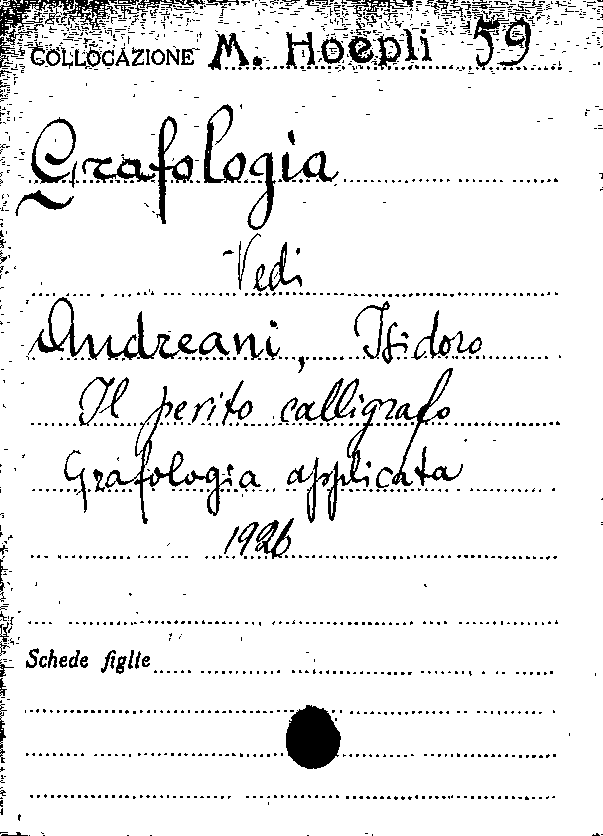 COLLOCAZIONE M. Hoepli 59
Grafologia
Vedi
Andreani, Isidoro
Il perito calligrafo
Grafologia applicata
1926
Schede figlie